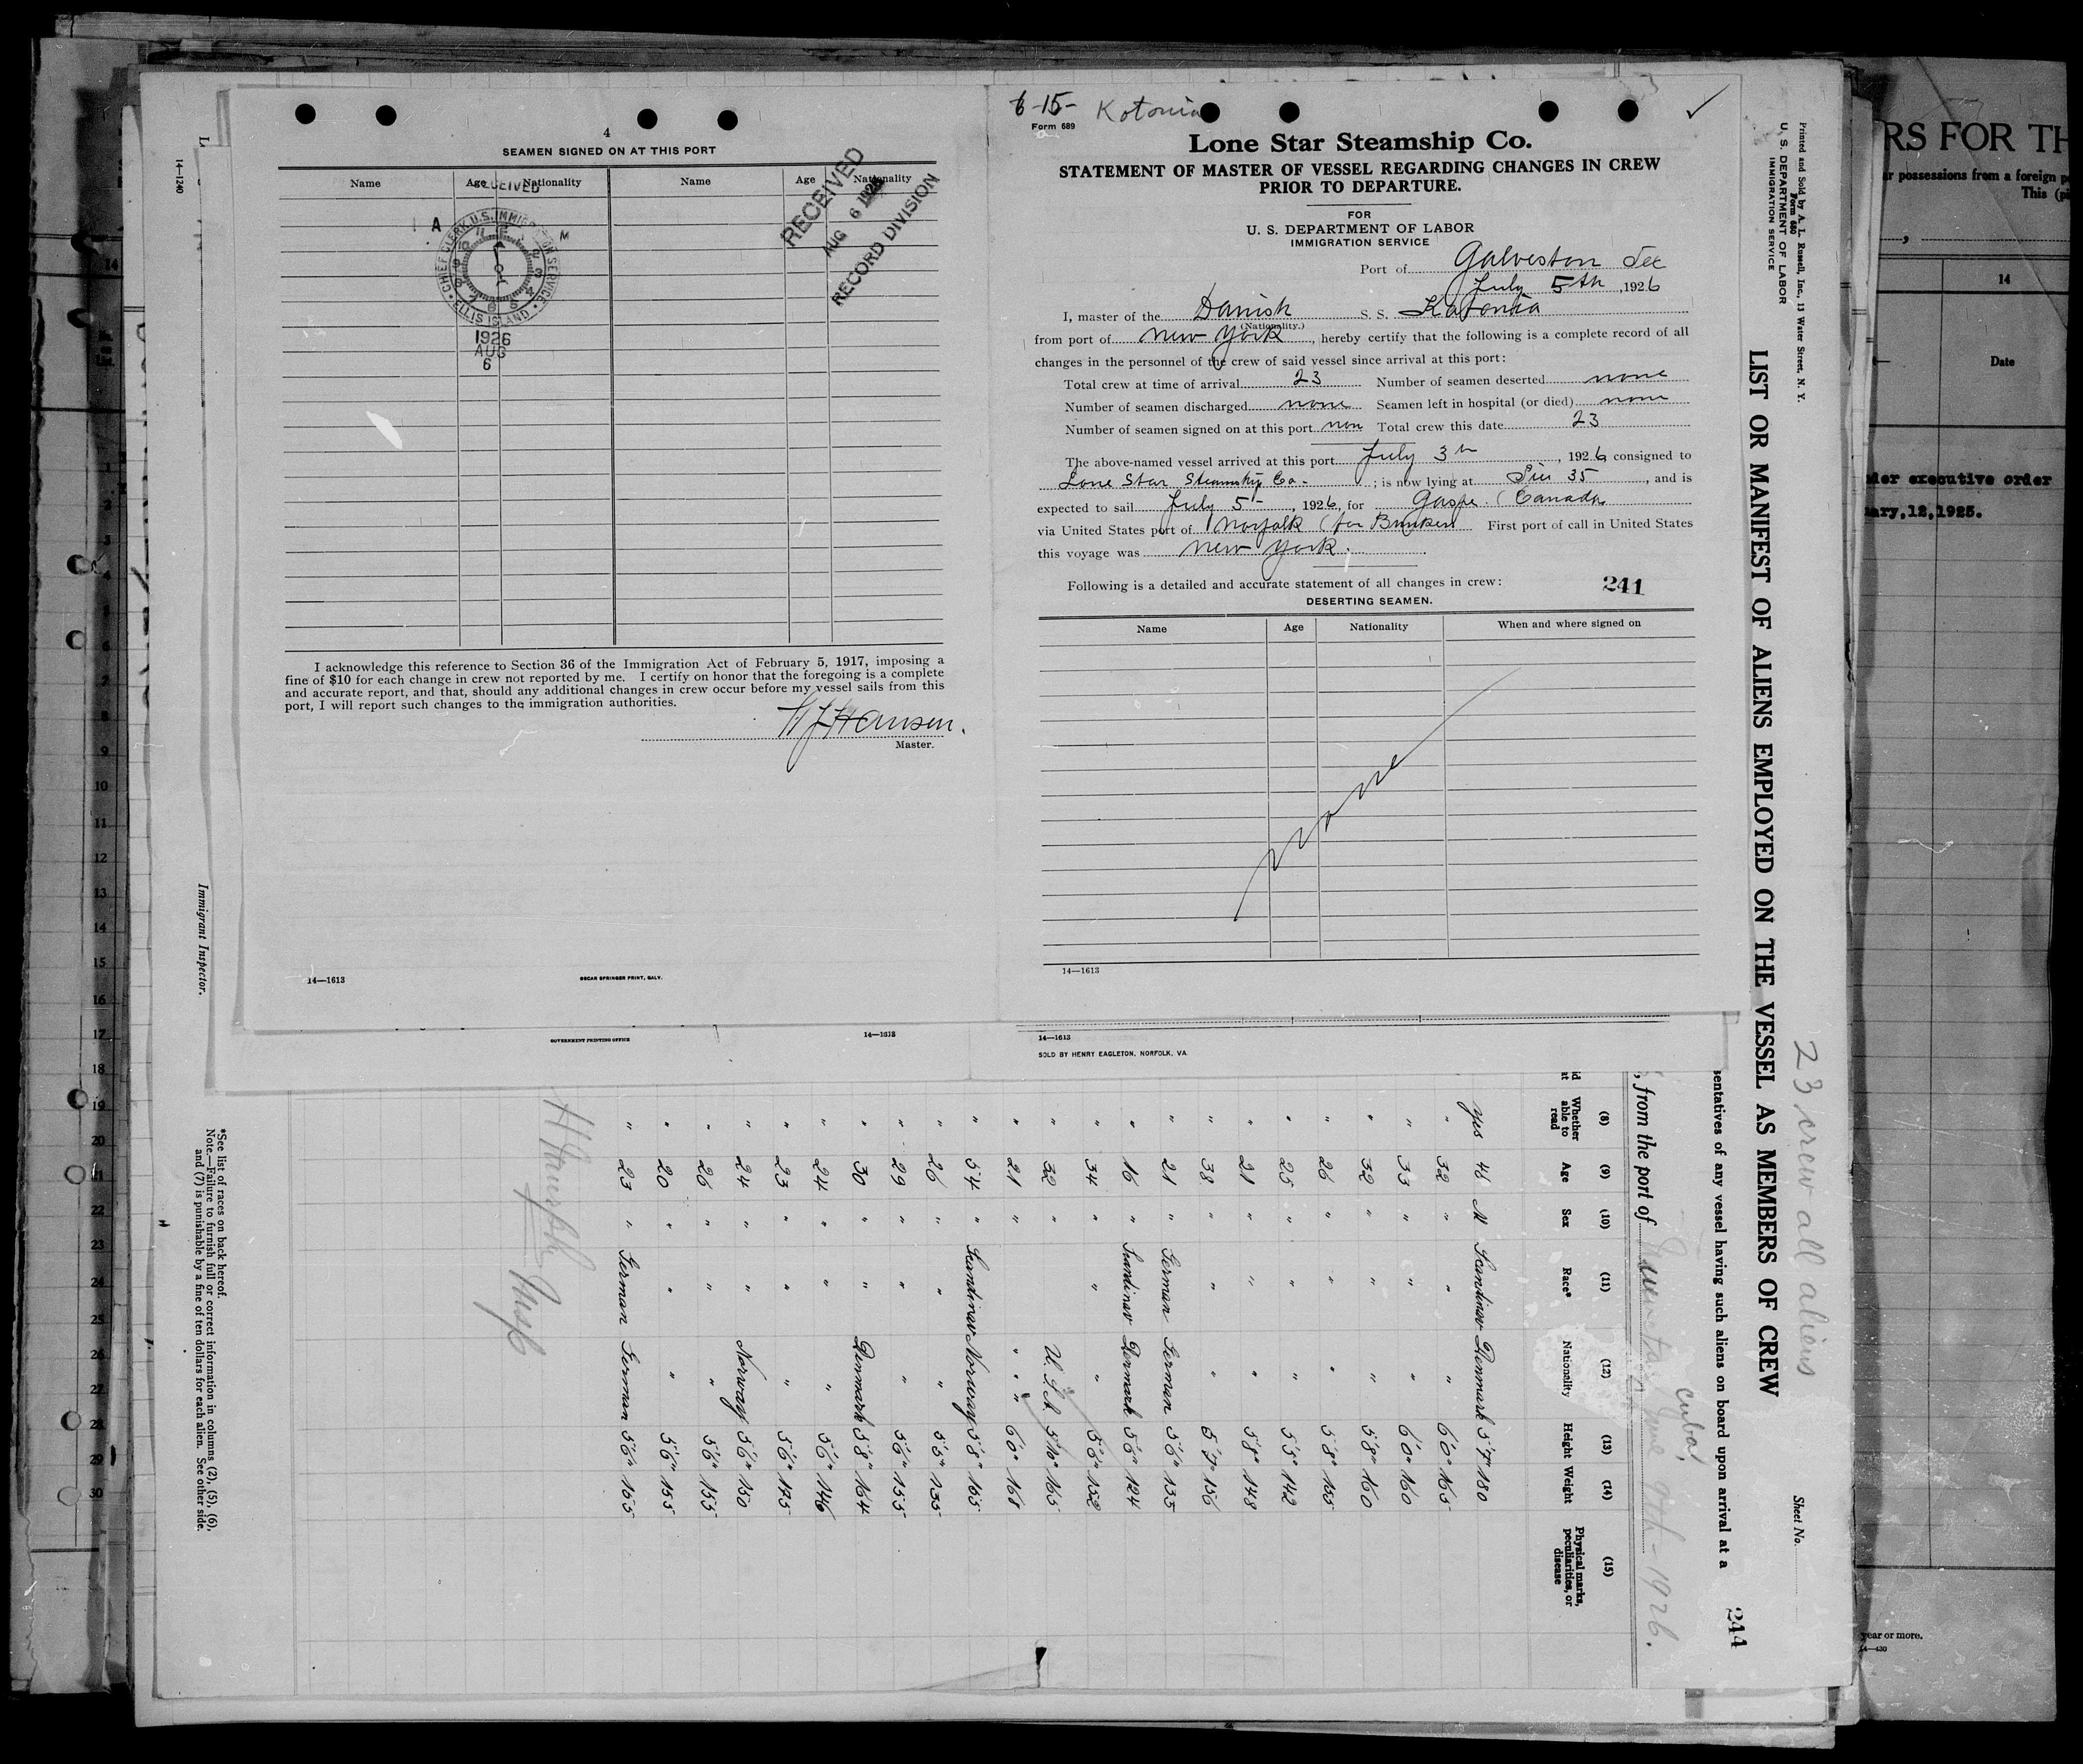 4
SEAMEN SIGNED ON AT THIS PORT
Name Age Nationality Name Age Nationality
RECEIVED
A M
CHIEF CLERK U.S. IMMIGRATION SERVICE
ELLIS ISLAND
1926
AUG
6
RECEIVED
AUG 6 1926
RECORD DIVISION
I acknowledge this reference to Section 36 of the Immigration Act of February 5, 1917, imposing a
fine of $10 for each change in crew not reported by me. I certify on honor that the foregoing is a complete
and accurate report, and that, should any additional changes in crew occur before my vessel sails from this
port, I will report such changes to the immigration authorities.
Hansen.
Master.
14—1613
OSCAR SPRINGER PRINT, GALV.
6-15- Kotonia
Form 689
Lone Star Steamship Co.
STATEMENT OF MASTER OF VESSEL REGARDING CHANGES IN CREW
PRIOR TO DEPARTURE.
FOR
U. S. DEPARTMENT OF LABOR
IMMIGRATION SERVICE
Port of Galveston Tex
July 5th, 1926
I, master of the Danish S. S. Katonia
(Nationality.)
from port of New York, hereby certify that the following is a complete record of all
changes in the personnel of the crew of said vessel since arrival at this port:
Total crew at time of arrival 23 Number of seamen deserted none
Number of seamen discharged none Seamen left in hospital (or died) none
Number of seamen signed on at this port non Total crew this date 23
The above-named vessel arrived at this port July 3, 1926 consigned to
Lone Star Steamship Co. ; is now lying at Pier 35, and is
expected to sail July 5-, 1926, for Gaspe (Canada
via United States port of Norfolk (for Bunkers First port of call in United States
this voyage was New York.
Following is a detailed and accurate statement of all changes in crew: 241
DESERTING SEAMEN.
Name Age Nationality When and where signed on
none
14—1613
GOVERNMENT PRINTING OFFICE
14—1613
14—1613
SOLD BY HENRY EAGLETON, NORFOLK, VA
Printed and Sold by A. L. Russell, Inc., 13 Water Street, N. Y.
Form 680
U. S. DEPARTMENT OF LABOR
IMMIGRATION SERVICE
23 crew all aliens
Sheet No.
LIST OR MANIFEST OF ALIENS EMPLOYED ON THE VESSEL AS MEMBERS OF CREW
244
sentatives of any vessel having such aliens on board upon arrival at a
Cuba,
, from the port of June 9th-1926.
(8) (9) (10) (11) (12) (13) (14) (15)
Whether able to read Age Sex Race* Nationality Height Weight Physical marks, peculiarities, or disease
yes 46 M Scandinav Denmark 5'7 180
" 32 " " " 6'0" 165
" 33 " " " 6'0" 160
" 32 " " " 5'8" 160
" 26 " " " 5'8" 165
" 25 " " " 5'5" 142
" 21 " " " 5'8" 148
" 38 " " " 5'7" 156
" 21 " German German 5'6" 135
" 16 " Scandinav Denmark 5'6" 124
" 34 " " " 5'6" 152
" 32 " U.S.A. 5'10" 165
" 21 " " " 6'0" 168
" 54 " Scandinav Norway 5'8" 165
" 26 " " " 5'5" 135
" 29 " " " 5'6" 155
" 30 " " Denmark 5'8" 164
" 24 " " " 5'6" 146
" 23 " " " 5'6" 145
" 24 " " Norway 5'6" 150
" 26 " " " 5'6" 155
" 20 " " " 5'6" 155
" 23 " German German 5'6" 165
*See list of races on back hereof.
Note.—Failure to furnish full or correct information in columns (2), (5), (6),
and (7) is punishable by a fine of ten dollars for each alien. See other side.
Immigrant Inspector.
14—1240
14
1
2
3
4
5
6
7
8
9
10
11
12
13
14
15
16
17
18
19
20
21
22
23
24
25
26
27
28
29
30
RS FOR TH
or possessions from a foreign
This (
14
Date
executive order
ary,12,1925.
year or more.